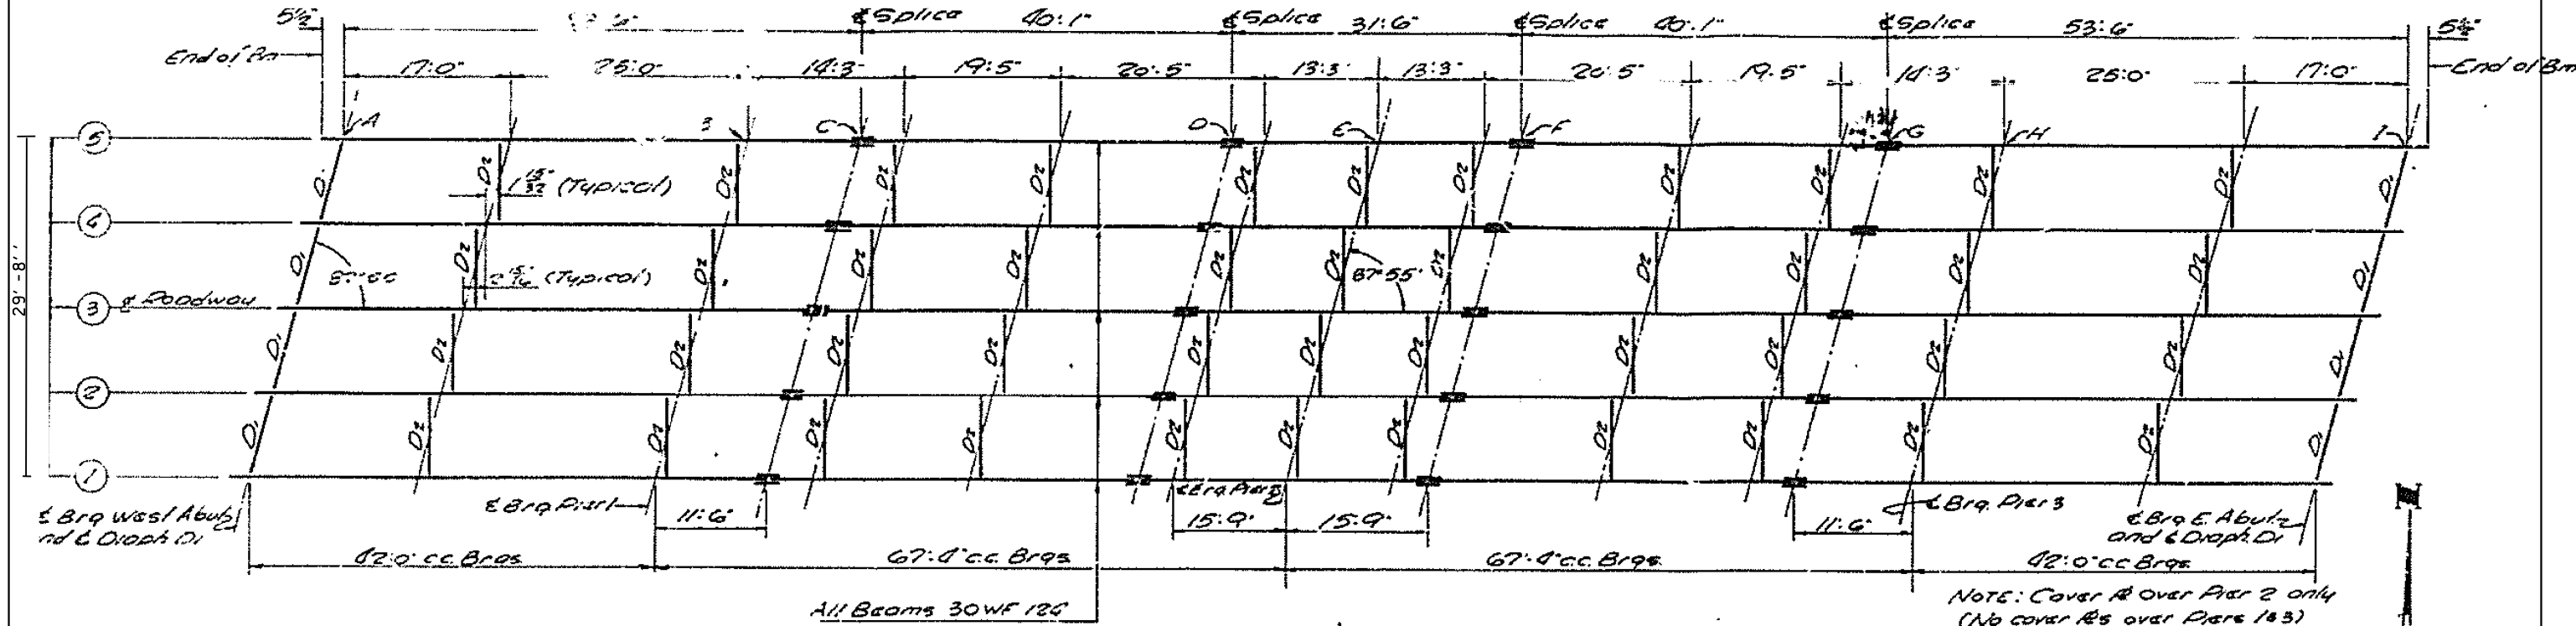 5½" ℄ Splice 40'-1" ℄ Splice 31'-6" ℄ Splice 40'-1" ℄ Splice 53'-6" 5½"
End of Bm End of Bm
17'-0" 25'-0" 14'-3" 19'-5" 20'-5" 13'-3" 13'-3" 20'-5" 19'-5" 14'-3" 25'-0" 17'-0"
A C D E F G H I
5
D1 D2 D2 D2 D2 D2 D2 D2 D2 D2 D2 D2 D1
1 15/32" (Typical)
4
D1 D2 D2 D2 D2 D2 D2 D2 D2 D2 D2 D2 D1
(Typical)
87°55'
29'-8"
3 ℄ Roadway
D1 D2 D2 D2 D2 D2 D2 D2 D2 D2 D2 D2 D1
2
D1 D2 D2 D2 D2 D2 D2 D2 D2 D2 D2 D2 D1
1
℄ Brg West Abut
nd ℄ Diaph D1
℄ Brg Pier 1
11'-6"
℄ Brg Pier 2
15'-9" 15'-9"
11'-6"
℄ Brg. Pier 3
℄ Brg E. Abut
and ℄ Diaph. D1
42'-0" cc. Brgs. 67'-4" c.c. Brgs. 67'-4" c.c. Brgs. 42'-0" cc Brgs
All Beams 30 WF 124
NOTE: Cover ℞ over Pier 2 only
(No cover ℞s over Piers 1&3)